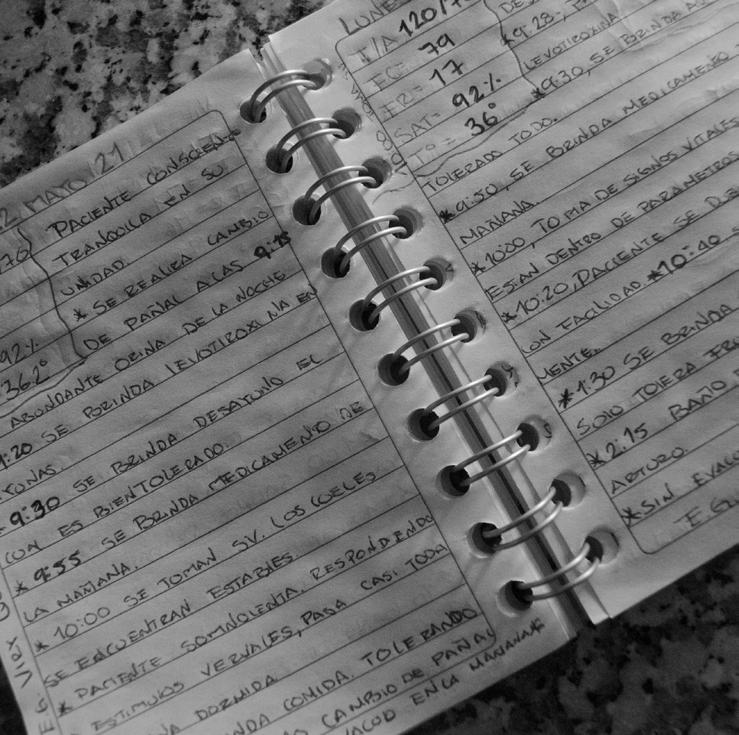 2 MAYO 21
PACIENTE CONSCIENT
TRANQUILA EN SU
UNIDAD.
* SE REALIZA CAMBIO
DE PAÑAL A LAS 9:15
ABUNDANTE ORINA DE LA NOCHE
:20 SE BRINDA LEVOTIROXINA EN
YUNAS.
9:30 SE BRINDA DESAYUNO EL
CUAL ES BIEN TOLERADO.
* 9:55 SE BRINDA MEDICAMENTO DE
LA MAÑANA.
* 10:00 SE TOMAN S.V. LOS CUELES
SE ENCUENTRAN ESTABLES.
* PACIENTE SOMNOLIENTA, RESPONDIENDO
ESTIMULOS VERVALES, PASA CASI TODA
DORMIDA
NDA COMIDA, TOLERANDO
CAMBIO DE PAÑAL
EN LA MAÑANA*
92%
36.2°
LUNES
T/A 120/70
FC= 79
FR= 17
SAT= 92%
T° = 36°
*9:28,
LEVOTIROXINA
*9:30, SE BRINDA
TOLERADO TODO.
*9:50, SE BRINDA MEDICAMENTO
MAÑANA.
*10:00, TOMA DE SIGNOS VITALES
ESTAN DENTRO DE PARAMETROS
*10:20, PACIENTE SE
CON FACILIDAD. *10:40
MENTE.
*1:30 SE BRINDA
SOLO TOLERA
*2:15 BAÑO
ARTURO.
*SIN EVACU